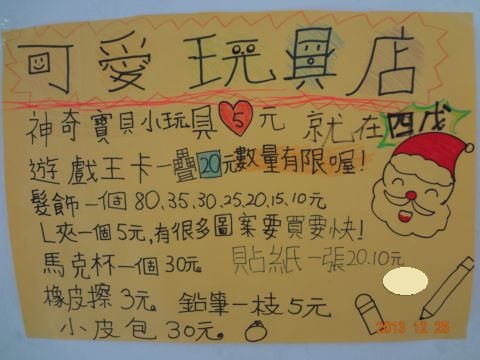 可愛玩具店
神奇寶貝小玩具5元 就在四戊
遊戲王卡一疊20元數量有限喔!
髮飾一個80.35.30.25.20.15.10元
L夾一個5元,有很多圖案要買要快!
馬克杯一個30元。 貼紙一張20.10元
橡皮擦3元。 鉛筆一枝5元
小皮包30元。
2013 12 25